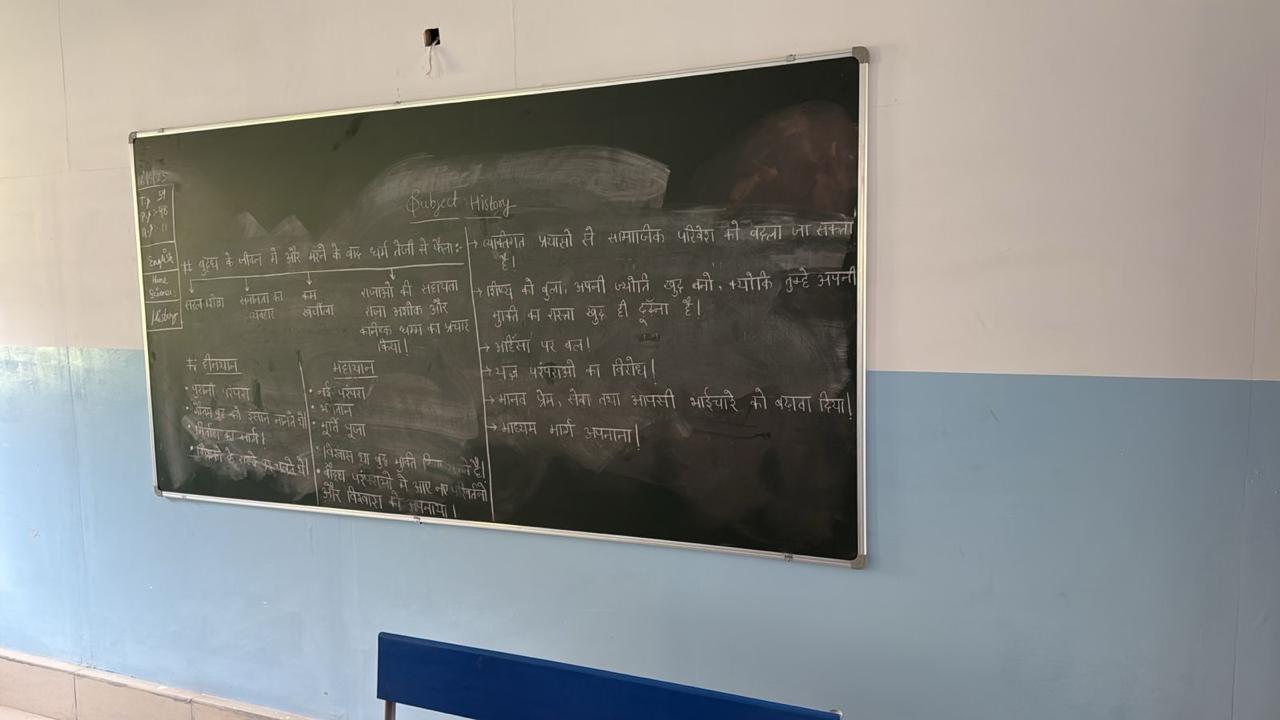 T.P :- 59
P.P :- 48
A.P :- 11
English
Home
Science
History
Subject :- History
# बुद्ध के जीवन में और मरने के बाद धर्म तेजी से फैला:-
समानता का
व्यवहार
कम
खर्चीला
राजाओं की सहायता
राजा अशोक और
कनिष्क धम्म का प्रचार
किया।
# हीनयान
• पुरानी परंपरा
• गौतम बुद्ध को इंसान मानते थे
• निर्वाण का मार्ग।
महायान
• नई परंपरा
• भगवान
• मूर्ति पूजा
• विश्वास था बुद्ध मुक्ति दिला सकते है।
• बौद्ध परंपराओ में आए नए परिवर्तनों
और विश्वास को अपनाया।
→ व्यक्तिगत प्रयासो से सामाजिक परिवेश को बदला जा सकता
है।
→ शिष्य को बुला, अपनी ज्योति खुद बनो, क्योकि तुम्हे अपनी
मुक्ती का रास्ता खुद ही ढूँढना है।
→ अहिंसा पर बल।
→ यज्ञ परंपराओ का विरोध।
→ मानव प्रेम, सेवा तथा आपसी भाईचारे को बढ़ावा दिया।
→ माध्यम मार्ग अपनाना।